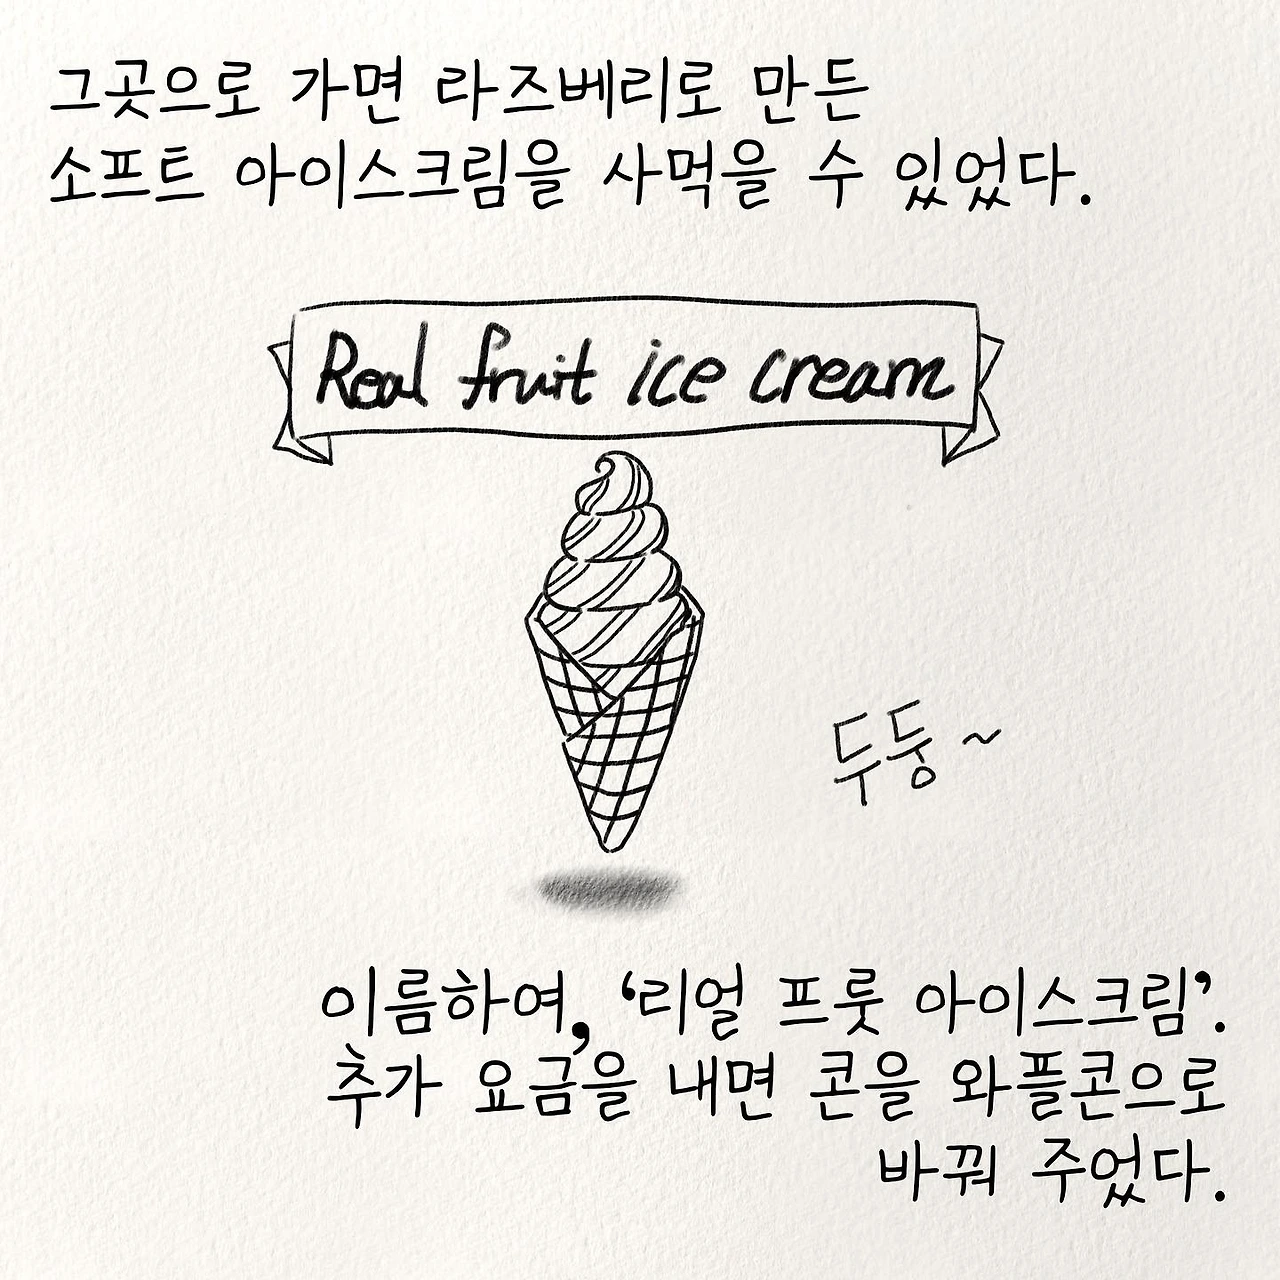 그곳으로 가면 라즈베리로 만든
소프트 아이스크림을 사먹을 수 있었다.
Real fruit ice cream
두둥~
이름하여, ‘리얼 프룻 아이스크림’.
추가 요금을 내면 콘을 와플콘으로
바꿔 주었다.